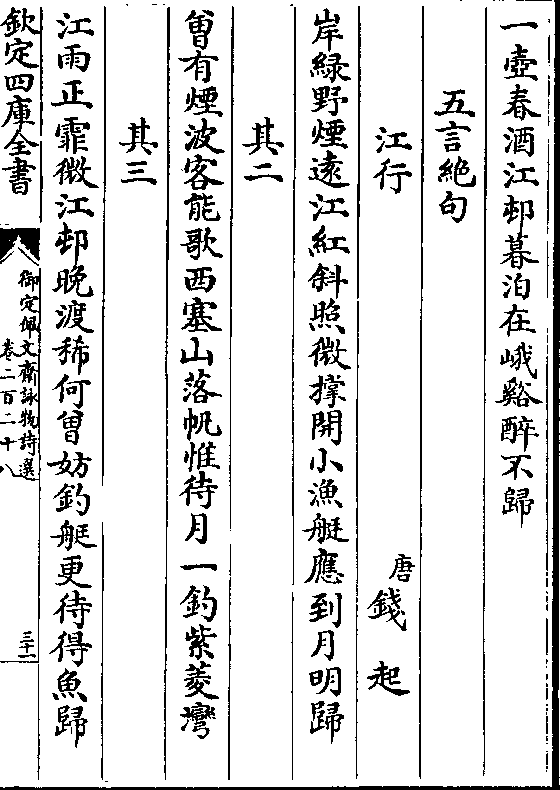 一壺春酒江邨暮泊在峨谿醉不歸
五言絶句
江行　唐錢起
岸緑野煙遠江紅斜照微撑開小漁艇應到月明歸
其二
曾有煙波客能歌西塞山落帆惟待月一釣紫菱灣
其三
江雨正霏微江邨晚渡稀何曾妨釣艇更待得魚歸
欽定四庫全書
御定佩文齋詠物詩選
卷二百二十八
三十一